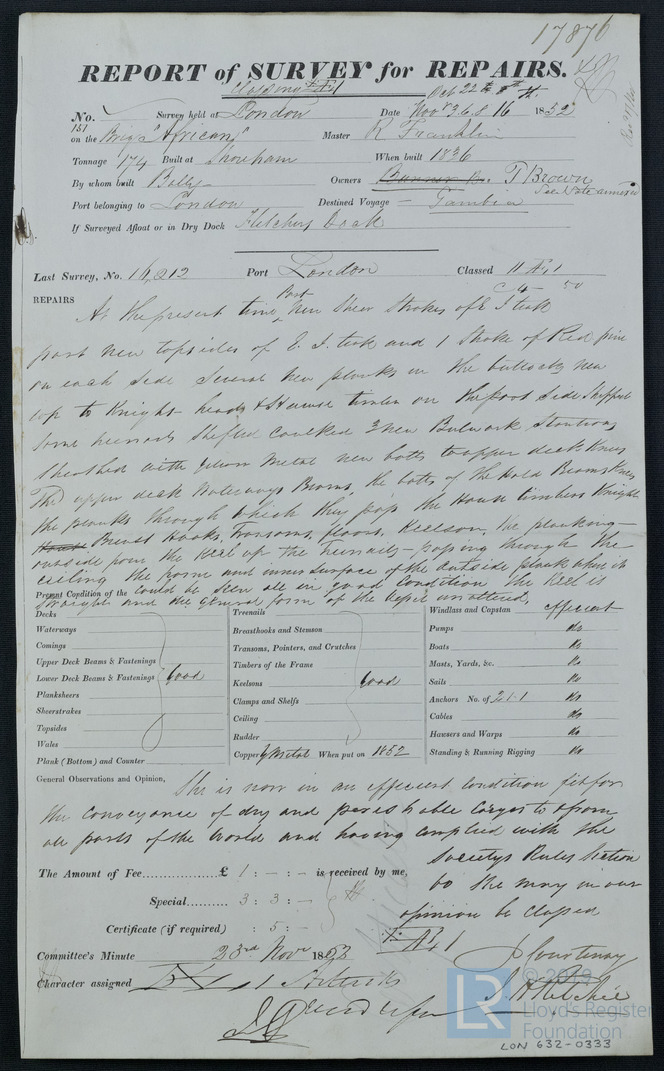 17876
REPORT of SURVEY for REPAIRS.
No. Survey held at London Date Oct 22 Novr 3. 6. 8 16 1852
151
on the Brig "African" Master R Franklin
Tonnage 174 Built at Shoreham When built 1836
By whom built Owners T Brown
See Note annexed
Port belonging to London Destined Voyage — Gambia
If Surveyed Afloat or in Dry Dock Fletchers Dock
Last Survey, No. Port London Classed
REPAIRS At the present time Part New Sheer Strakes of E I teak
part new topsides of E. I. teak and 1 Strake of Red pine
on each side Several New planks in the buttocks new
top to Knight heads & Hawse timber on the port side Shifted
Some treenails Shifted caulked New Bulwark Stantions
Sheathed with Yellow Metal new bolts to upper deck Knees
The upper deck Waterways Beams, the bolts of the Hold Beams Knees
the planks through which they pass the Hawse timbers Knight
Breast Hooks, Transoms, floors, Keelson, the planking —
outside from the Keel up the treenails — passing through the
ceiling the frame and inner surface of the outside plank when it
could be seen all in good Condition the Keel is
Straight and the General form of the Vessel unaltered.
Present Condition of the
Decks Treenails Windlass and Capstan efficient
Waterways Breasthooks and Stemson Pumps Do
Comings Transoms, Pointers, and Crutches Boats Do
Upper Deck Beams & Fastenings Timbers of the Frame Masts, Yards, &c. Do
Lower Deck Beams & Fastenings Good Keelsons Good Sails Do
Planksheers Clamps and Shelfs Anchors No. of 2.1.1 Do
Sheerstrakes Ceiling Cables Do
Topsides Rudder Hawsers and Warps Do
Wales Copper Y Metal When put on 1852 Standing & Running Rigging Do
Plank (Bottom) and Counter
General Observations and Opinion, She is now in an efficient condition fit for
the conveyance of dry and perishable cargos to & from
all parts of the World and having complied with the
Societys Rules Section
60 She may in our
opinion be Classed
The Amount of Fee £ 1 : – : – is received by me,
Special 3 : 3 : –
Certificate (if required) : 5 : –
Committee's Minute 23rd Novr 1852
Character assigned
J Courtenay
J. H Ritchie
© 2019
LR Lloyd's Register
Foundation
LON 632-0333